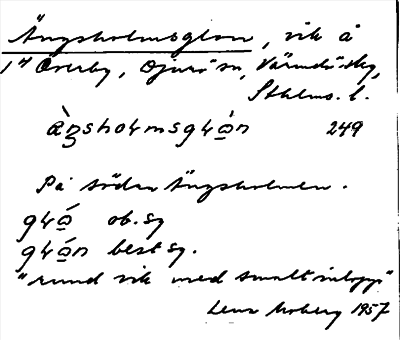 Ängsholmsglon, vik å
1" Överby, Djurö sn, Värmdö skg,
Sthlms. l.
àŋsholmsglón 249
På södra Ängsholmen.
gló ob. sg
glón best sg.
"rund vik med smalt inlopp"
Lena Moberg 1957